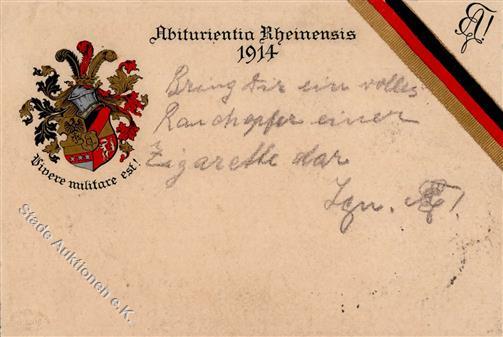 Abiturientia Rheinensis
1914
Bring Dir ein volles
Rauchopfer einer
Zigarette dar
Vivere militare est!
Stade Auktionen e.K.